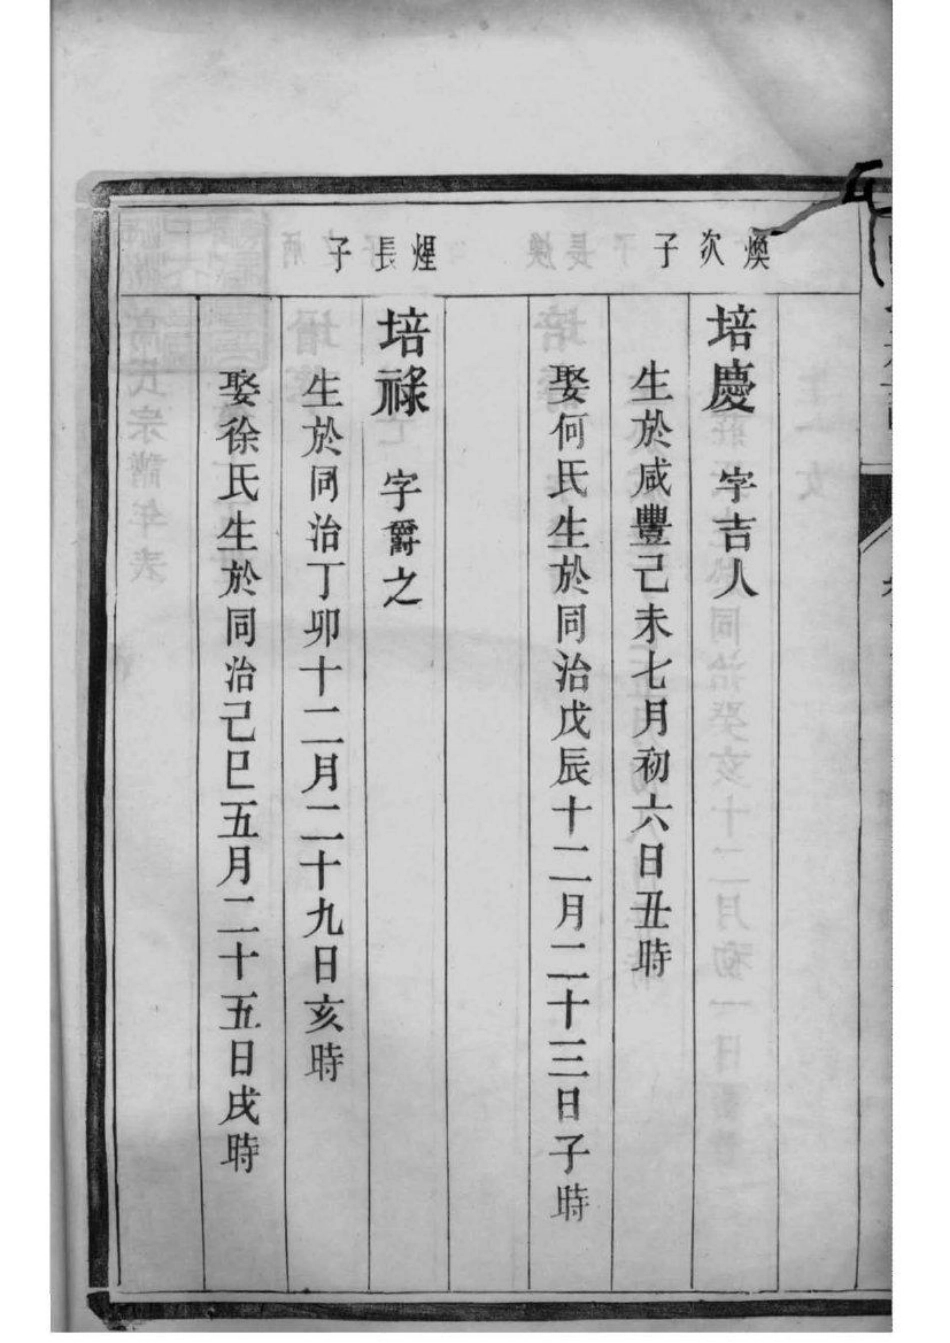 煥次子
培慶 字吉人
生於咸豐己未七月初六日丑時
娶何氏生於同治戊辰十二月二十三日子時
煋長子
培祿 字爵之
生於同治丁卯十二月二十九日亥時
娶徐氏生於同治己巳五月二十五日戌時